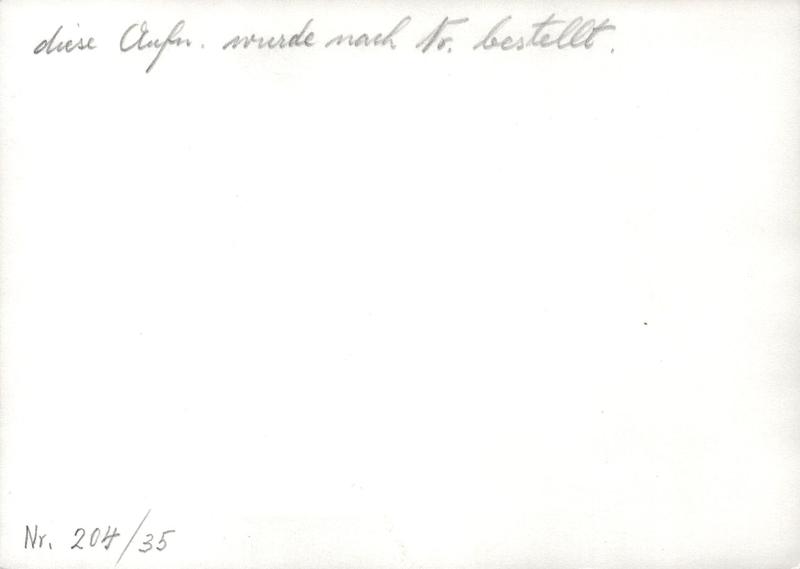 diese Aufn. wurde nach Nr. bestellt.
Nr. 204/35